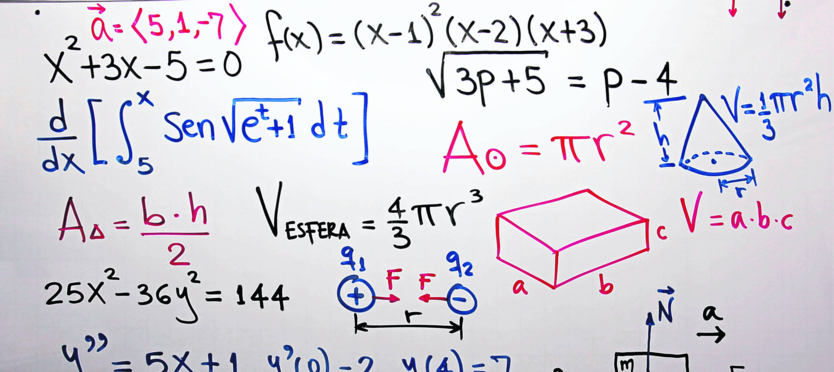 a⃗ = ⟨5,1,-7⟩
f(x) = (x-1)²(x-2)(x+3)
x²+3x-5=0
√(3p+5) = p-4
d/dx [∫₅ˣ Sen√(eᵗ+1) dt]
A⊙ = πr²
h
r
V=1/3πr²h
A△ = b·h/2
V ESFERA = 4/3 πr³
a
b
c
V=a·b·c
25x²-36y²=144
q₁
q₂
+
F
F
-
r
N⃗
a
m
y'' = 5x+1 y'(0)=2 y(4)=7